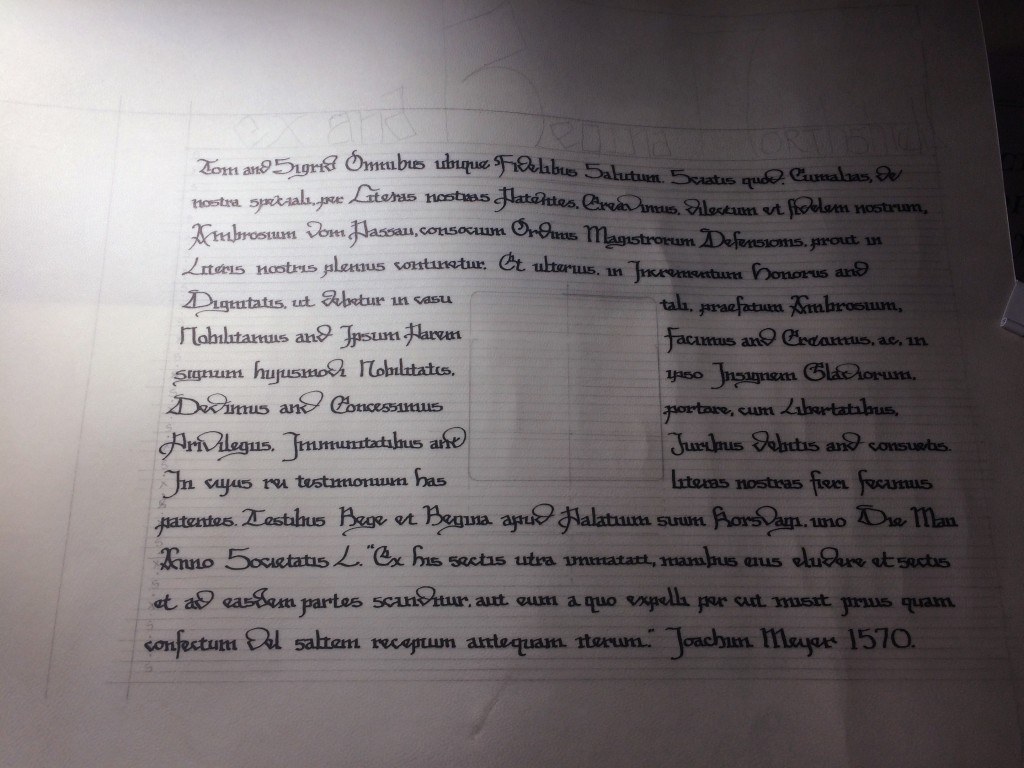 ex and Regina
Tom and Sigrid Omnibus ubique Fidelibus Salutum. Sciatis quod, Cumalias, de
nostra speciali, per Literas nostras Patentes, Creavimus, dilectum et fidelem nostrum,
Ambrosium vom Passau, consocium Ordinis Magistrorum Defensionis, prout in
Literis nostris plenius continetur. Et ulterius, in Incrementum Honorus and
Dignitatis, ut debetur in casu tali, praefatum Ambrosium,
Nobilitamus and Ipsum Parem facimus and Creamus, ac, in
signum hujusmodi Nobilitatis, ipso Insignem Gladiorum,
Devimus and Concessimus portare, cum Libertatibus,
Privilegiis, Immunitatibus and Juribus debitis and consuetis.
In cujus rei testimonium has literas nostras fieri fecimus
patentes. Testibus Rege et Regina apud Palatium suum Rorsvagi, uno Die Maii
Anno Societatis L. "Ex his sectis utra immatati, manibus eius eludere et sectis
et ad easdem partes scinditur, aut eum a quo expelli per cut misit prius quam
confectum vel saltem receptum antequam iterum." Joachim Meyer 1570.